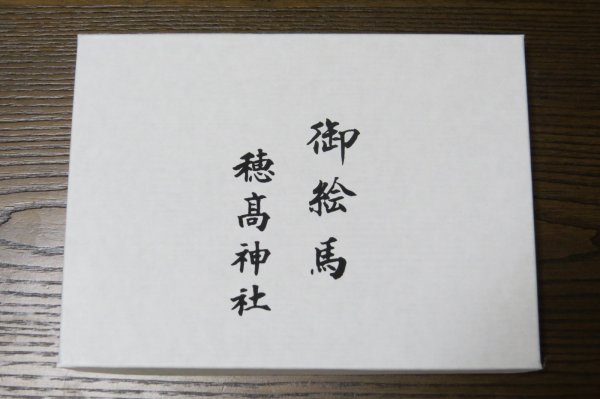 御絵馬
穂髙神社